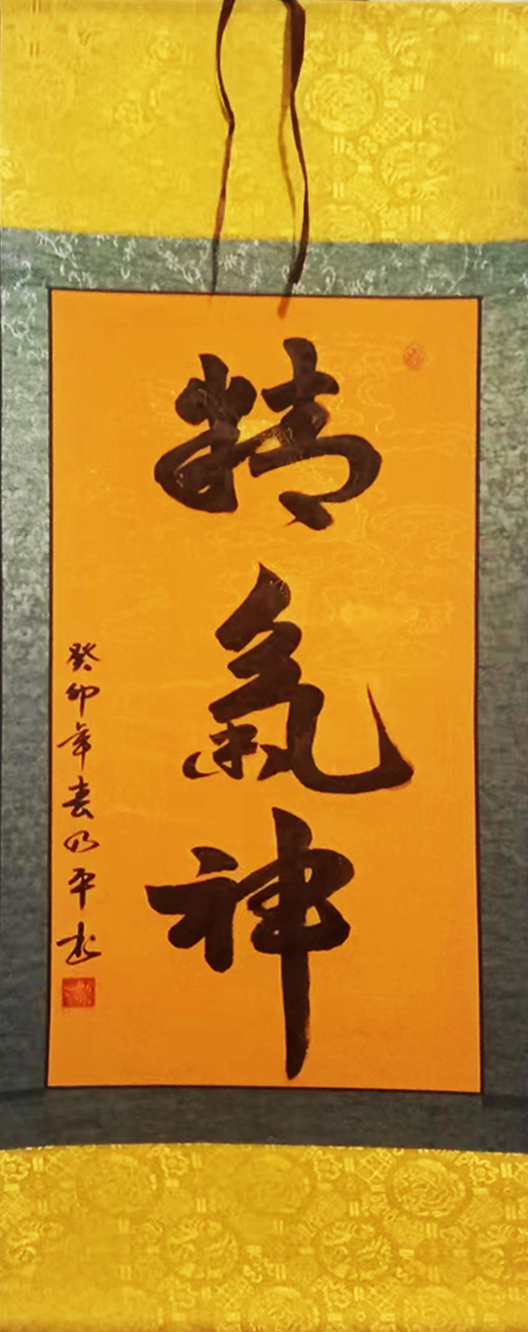 精氣神
癸卯年春乃平書